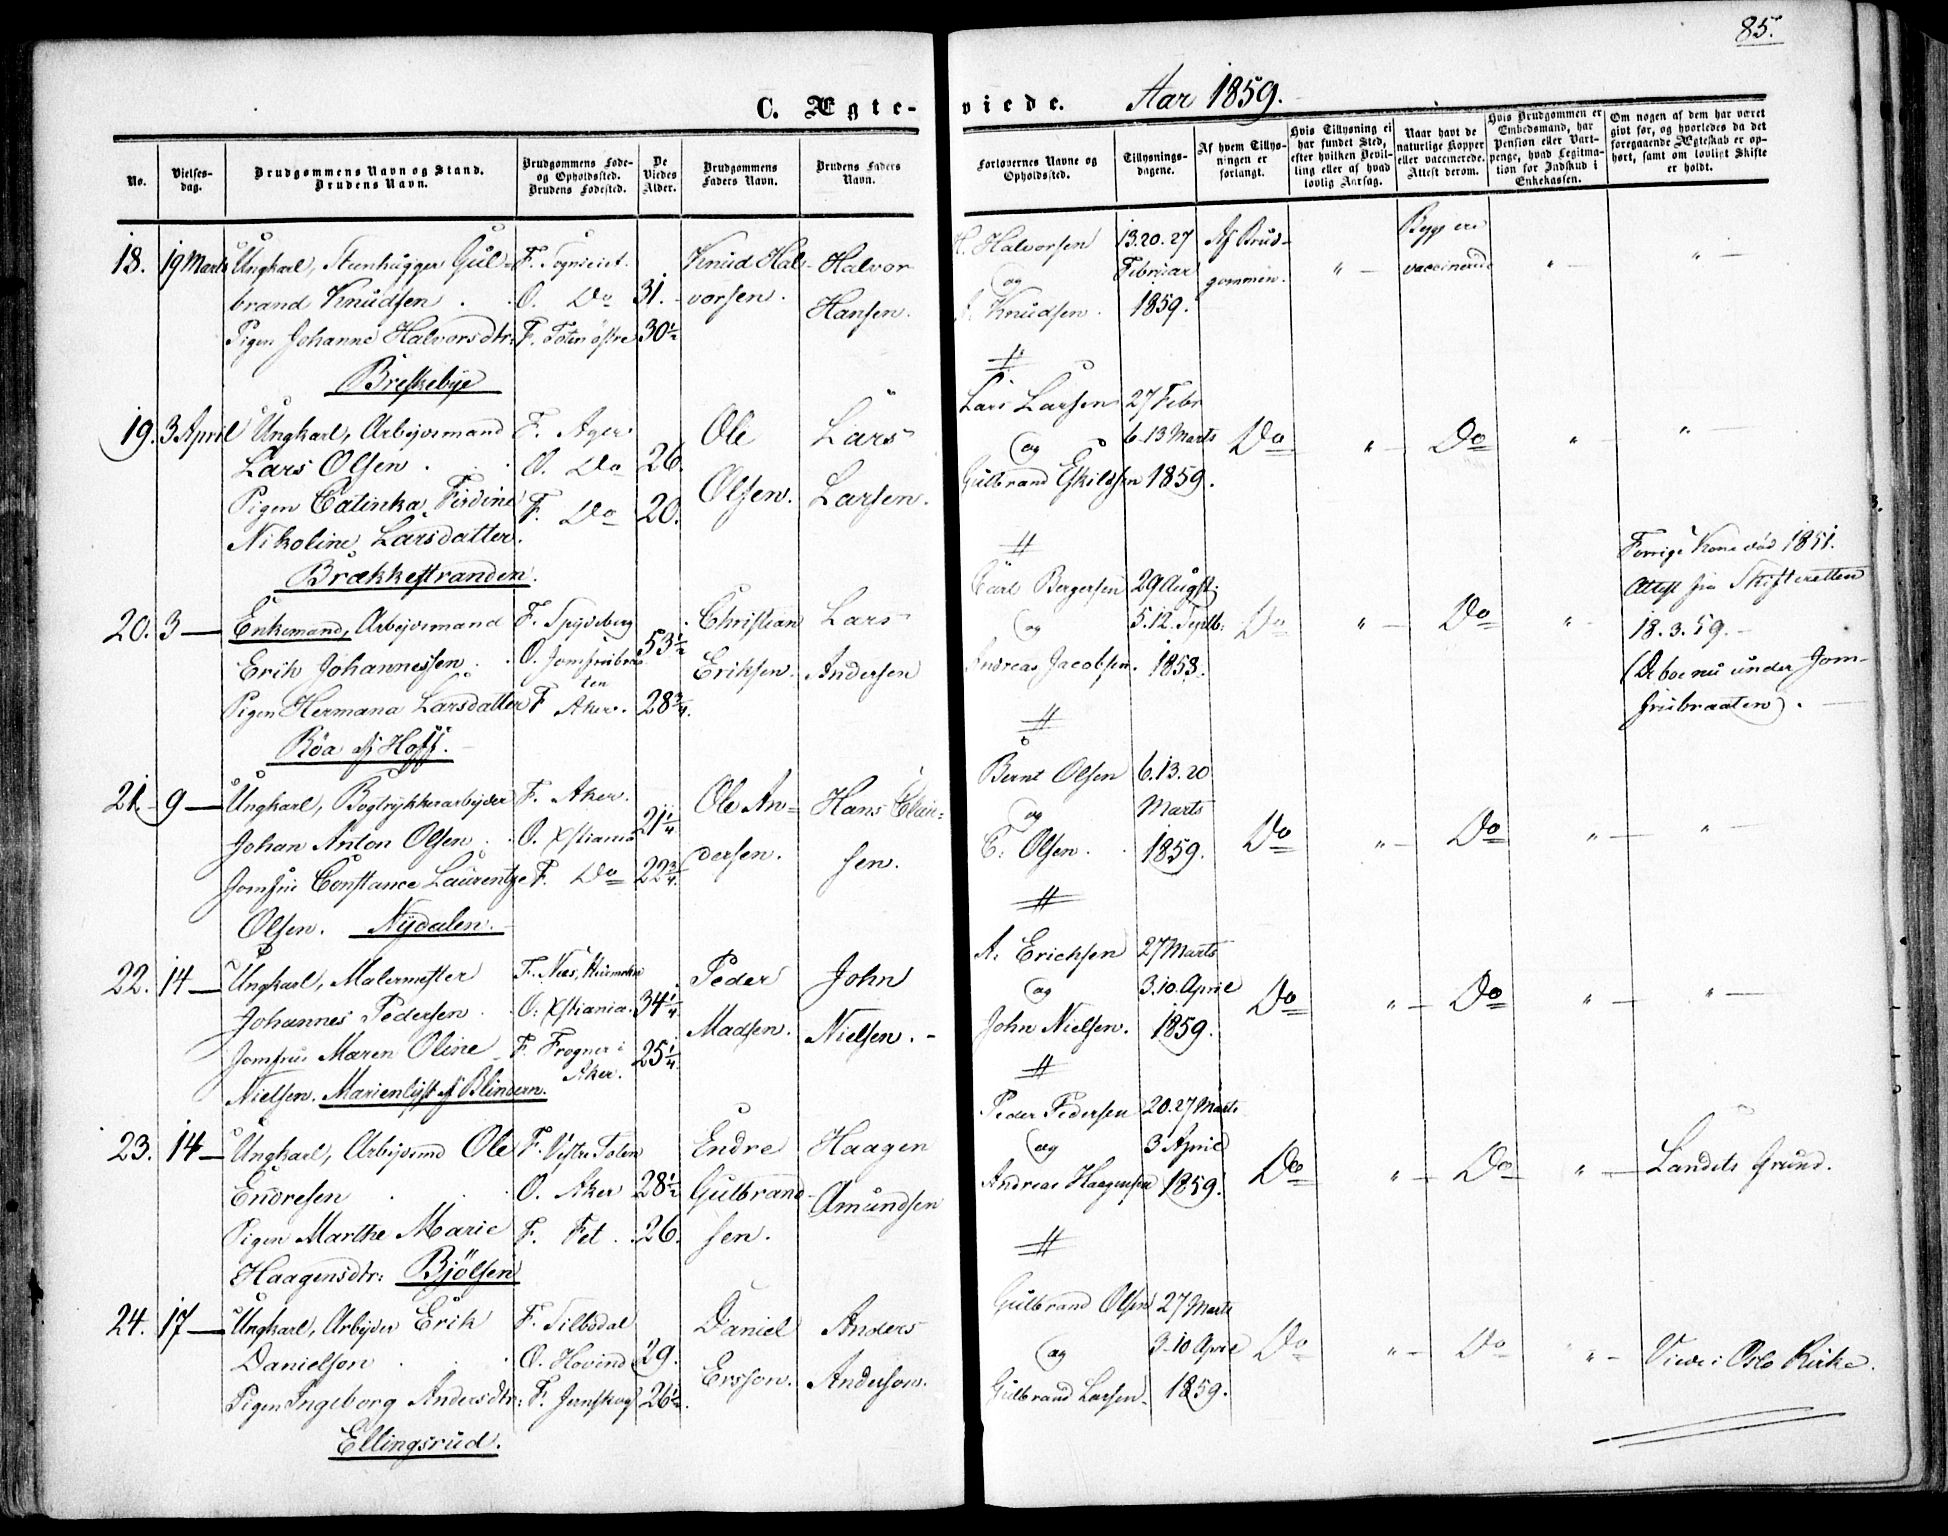 85.
C. Ægte-viede. Aar 1859.
No.
Vielses-dag.
Brudgommens Navn og Stand. Brudens Navn.
Brudgommens Føde- og Opholdssted. Brudens Fødested.
De Viedes Alder.
Brudgommens Faders Navn.
Brudens Faders Navn.
Forlovernes Navne og Opholdssted.
Tillysnings-dagene.
Af hvem Tillysningen er forlangt.
Hvis Tillysning ei har fundet Sted, efter hvilken Bevilling eller af hvad lovlig Aarsag.
Naar havt de naturlige Kopper eller vaccinerede. Attest derom.
Hvis Brudgommen er Embedsmand, har Pension eller Vartpenge, hvad Legitimation for Indskud i Enkekassen.
Om nogen af dem har været givt før, og hvorledes da det foregaaende Ægteskab er ophørt, samt om lovligt Skifte er holdt.
18. 19 Marts Ungkarl, Steenhugger Gul- F. Sognteiet. Knud Hal- Halvor H. Halvorsen 13. 20. 27 Af Brud- " — Begge ere " — " —
brand Knudsen . . O. Do 31. vorsen. Hansen. og Februar gommen. vaccinerede
Pigen Johanne Halvorsdtr: F. Toten østre 30½ Knudsen. 1859.
Breskebye
19. 3 April Ungkarl, Arbejdsmand F. Ager Ole Lars Lars Larsen 27 Febr
Lars Olsen . . O. Do 26. Olsen. Larsen. og 6. 13 Marts Do " — Do " — " —
Pigen Catinka, Ferdine F. Do 20. Gulbrand Eskildsen 1859.
Nikoline Larsdatter.
Brækkestranden.
20. 3 — Enkemand, Arbejdsmand F. Spydeberg 53½ Christian Lars Carl Bergersen 29 Augst. Do " — Do " — Forrige Kone død 1851.
Erik Johannessen . . O. Jomfrubraaten Eriksen. Andersen og 5. 12. Septb: Attest fra Skifteretten
Pigen Hermana Larsdatter F Aker. 28¾. Andreas Jacobsen. 1858. 18. 3. 59. —
Røa af Hoff. (De boe nu under Jom-
frubraaten).
21. 9 — Ungkarl, Bogtrykkerarbejder F. Aker. 21¼ Ole An- Hans Bernt Olsen 6. 13. 20
Johan Anton Olsen . . O. Xstiania dersen. sen. og Marts Do " — Do " — " —
Jomfru Constance Laurentze F. Do 22¾. C. Olsen. 1859.
Olsen. Nydalen.
22. 14 — Ungkarl, Malermester F. Næs, Peder John A. Erichsen 27 Marts
Johannes Pedersen . O. Xstiania. 34¼ Madsen. Nielsen. — og 3. 10. April Do " — Do " — " —
Jomfru Maren Oline F. Frogner i Aker. 25¼ John Nielsen. 1859.
Nielsen. Marienlyst af Blindern.
23. 14 — Ungkarl, Arbejdsmd Ole F. Vestre Toten Endre Haagen Peder Pedersen 20. 27 Marts
Endresen . . O. Aker 28½ Gulbrand- Amundsen og 3 April Do " — Do " — Landets Grund.
Pigen Marthe Marie F. Fet . 26. sen. Andreas Haagensen 1859.
Haagensdtr: Bjølsen
24. 17 — Ungkarl, Arbejder Erik F. Silbodal Daniel Anders Gulbrand Olsen 27 Marts
Danielson . . O. Hovind 29. Ersson. Anderson. og 3. 10 April Do " — Do " — Viede i Oslo Kirke.
Pigen Ingeborg Andersdtr: F. Jernskog 26½. Gulbrand Larsen. 1859.
Ellingsrud.